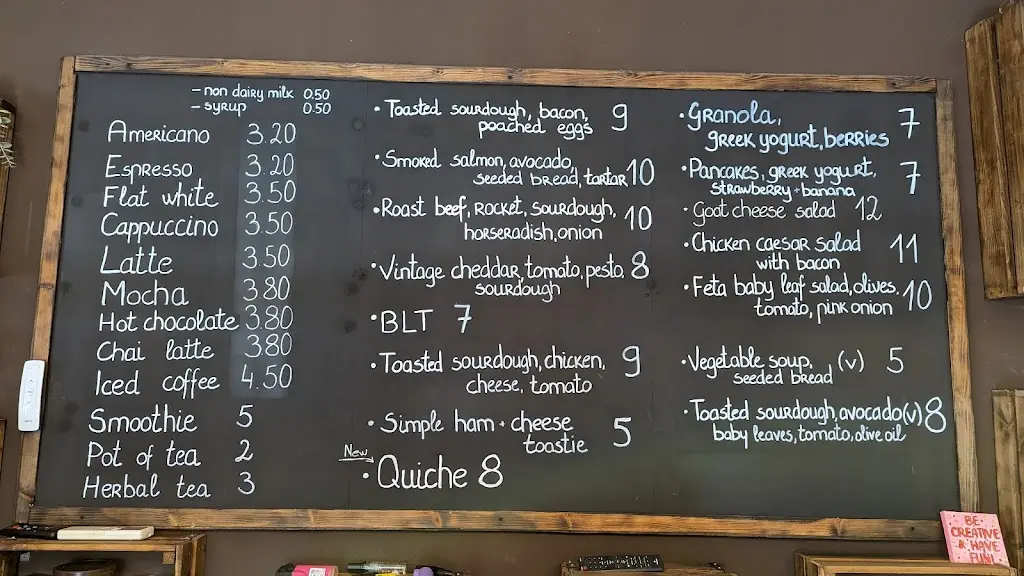 - non dairy milk 0.50
- syrup 0.50
Americano 3.20
Espresso 3.20
Flat white 3.50
Cappuccino 3.50
Latte 3.50
Mocha 3.80
Hot chocolate 3.80
Chai latte 3.80
Iced coffee 4.50
Smoothie 5
Pot of tea 2
Herbal tea 3
• Toasted sourdough, bacon,
poached eggs 9
• Smoked salmon, avocado,
seeded bread, tartar 10
• Roast beef, rocket, sourdough,
horseradish, onion 10
• Vintage cheddar, tomato, pesto, 8
sourdough
• BLT 7
• Toasted sourdough, chicken, 9
cheese, tomato
• Simple ham + cheese
toastie 5
New
• Quiche 8
• Granola, 7
greek yogurt, berries
• Pancakes, greek yogurt, 7
strawberry + banana
• Goat cheese salad 12
• Chicken caesar salad 11
with bacon
• Feta baby leaf salad, olives, 10
tomato, pink onion
• Vegetable soup, (v) 5
seeded bread
• Toasted sourdough, avocado (v) 8
baby leaves, tomato, olive oil
BE
CREATIVE
& HAVE
FUN!